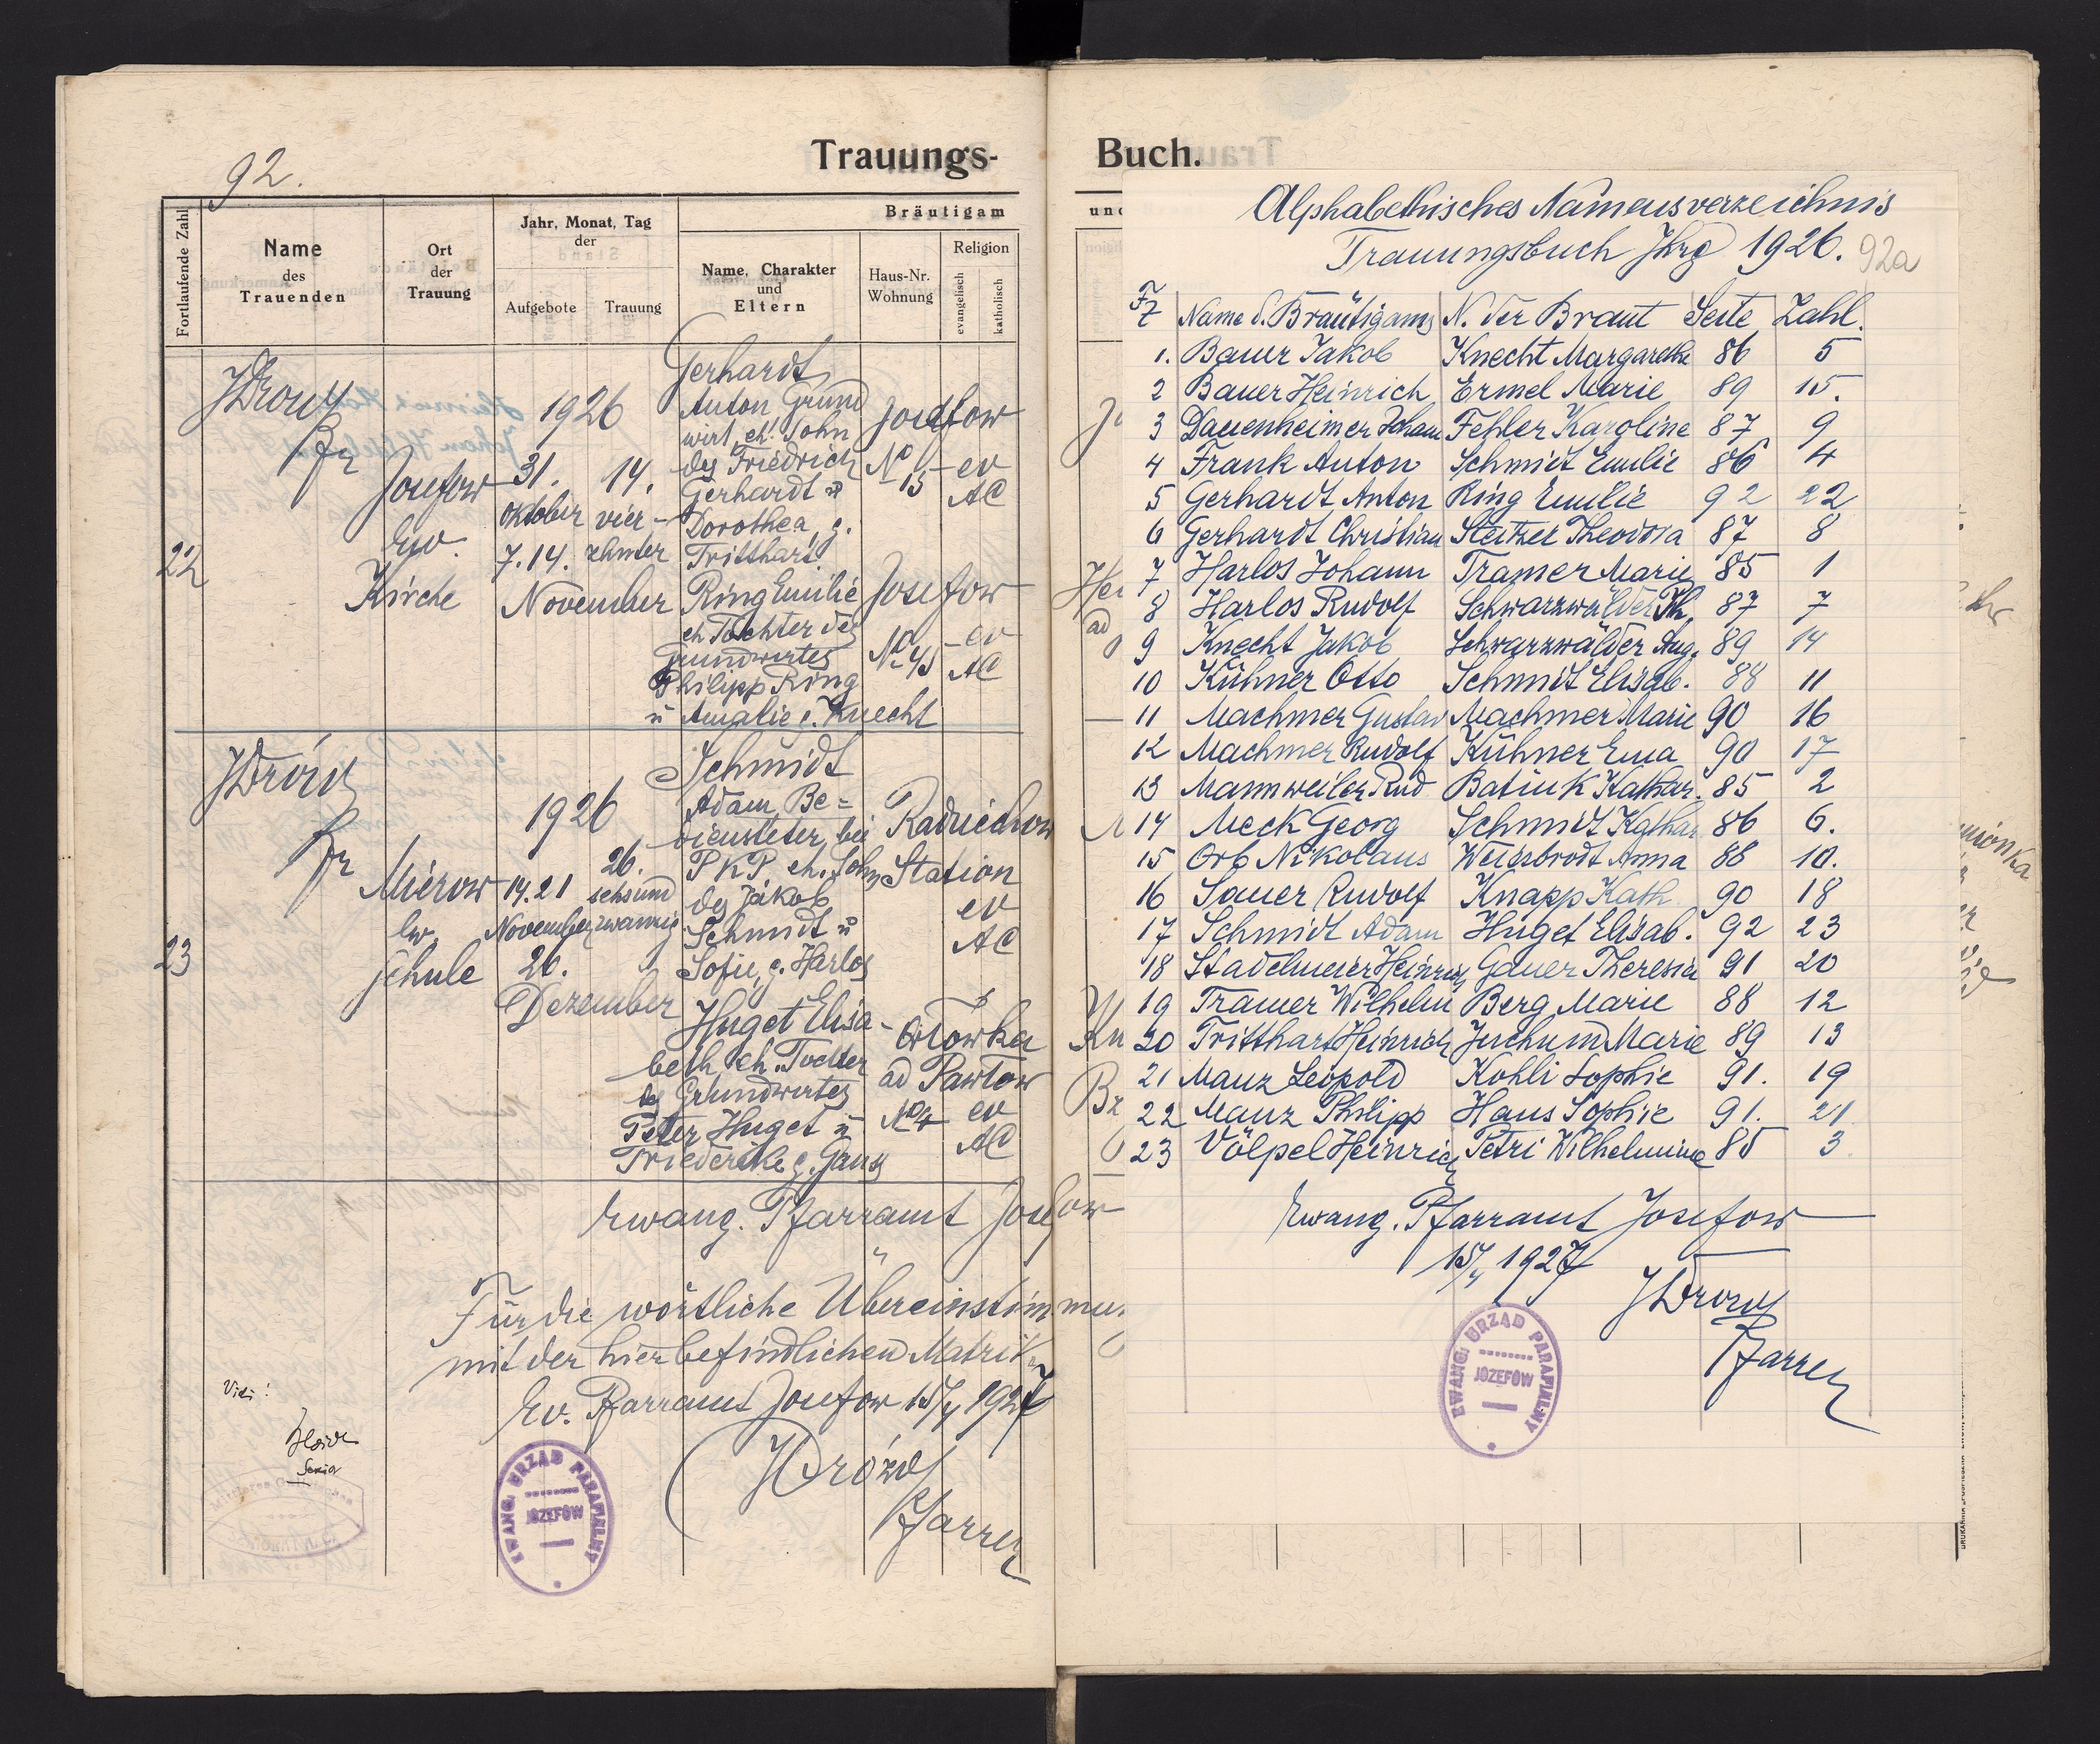 92.
Trauungs-
Fortlaufende Zahl
Name
des
Trauenden
Ort
der
Trauung
Jahr, Monat, Tag
der
Aufgebote
Trauung
Bräutigam
Name, Charakter
und
Eltern
Haus-Nr.
Wohnung
Religion
evangelisch
katholisch
22
JDrozd
Pfr
Josefow
Ev.
Kirche
1926
31.
Oktober
7.14.
November
14.
vier-
zehnter
Gerhardt
Anton Grund
wirt, eh. Sohn
des Friedrich
Gerhardt u
Dorothea, g.
Tritthart
Josefow
No 15
ev
AC
Ring Emilie
eh Tochter des
Grundwirtes
Philipp Ring
u Amalie g. Knecht
Josefow
No 45
ev
AC
23
JDrózd
Pfr
Mierow
Ev.
Schule
1926
14.21
November
26.
Dezember
26.
sechsund
zwanzig
Schmidt
Adam, Be=
diensteter bei
PKP, eh. Sohn
des Jakob
Schmidt u
Sofie, g. Harlos
Radziechow
Station
ev
AC
Huget Elisa-
beth eh. Tochter
des Grundwirtes
Peter Huget u
Friedericke g. Gans
Ortowka
ad Pawłow
No 4
ev
AC
Ewang. Pfarramt Josefow
Für die wörtliche Übereinstimmu.
mit der hierbefindlichen Matrik
Ev. Pfarramt Josefow 15/4 1927
JDrózd
Pfarrer
Vidi!
EWANG. URZĄD PARAFIALNY
JÓZEFÓW
Buch.
und
Alphabethisches Namensverzeichnis
Trauungsbuch Jhrg 1926.
92a
FZ Name d. Bräutigams N. der Braut Seite Zahl.
1. Bauer Jakob Knecht Margarethe 86 5
2 Bauer Heinrich Ermel Marie 89 15.
3 Dauenheimer Johann Fehler Karoline 87 9
4 Frank Anton Schmidt Emilie 86 4
5 Gerhardt Anton Ring Emilie 92 22
6 Gerhardt Christian Steitzer Theodora 87 8
7 Harlos Johann Tramer Marie 85 1
8 Harlos Rudolf Schwarzwälder Th. 87 7
9 Knecht Jakob Schwarzwälder Aug. 89 14
10 Kühner Otto Schmidt Elisab. 88 11
11 Machmer Gustav Machmer Marie 90 16
12 Machmer Rudolf Kühner Ema 90 17
13 Mannweiler Rud Batiuk Kathar. 85 2
14 Meck Georg Schmidt Kathar 86 6.
15 Orb Nikolaus Weissbrodt Anna 88 10.
16 Sauer Rudolf Knapp Kath. 90 18
17 Schmidt Adam Huget Elisab. 92 23
18 Stadelmeier Heinrich Gauer Theresia 91 20
19 Tramer Wilhelm Berg Marie 88 12
20 Tritthart Heinrich Juchum Marie 89 13
21 Manz Leopold Kohli Sophie 91. 19
22 Manz Philipp Haus Sophie 91. 21
23 Völpel Heinrich Petri Wilhelmine 85 3
Ewang. Pfarramt Josefow
15/4 1927
JDrozd
Pfarrer
EWANG. URZĄD PARAFIALNY
JÓZEFÓW